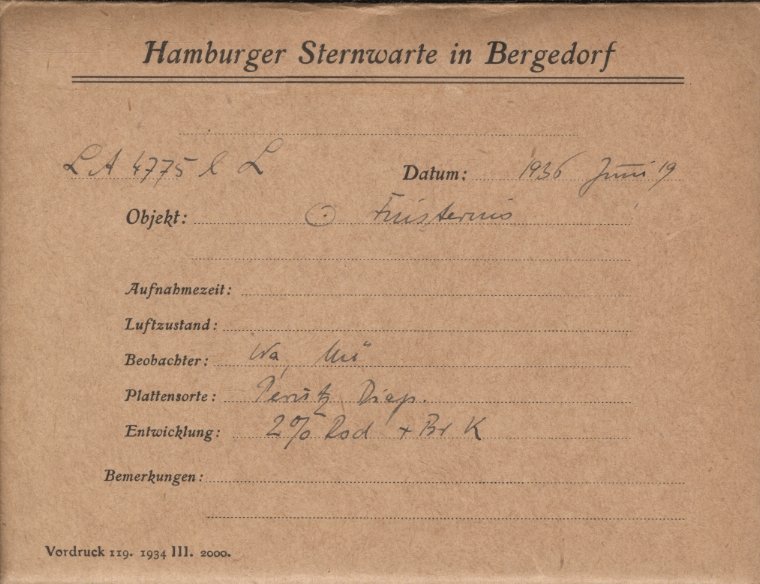 Hamburger Sternwarte in Bergedorf
LA 4775 b L Datum: 1936 Juni 19
Objekt: ☉ Finsternis
Aufnahmezeit:
Luftzustand:
Beobachter: Wa, Mü
Plattensorte: Perutz Diap.
Entwicklung: 2% Rod + Br K
Bemerkungen:
Vordruck 119. 1934 III. 2000.